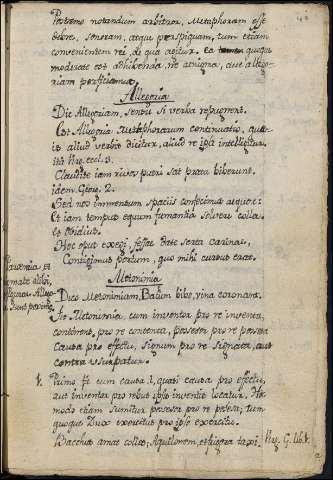 Postremo notandum arbitror, Metaphoram esse
debere, sonoram, atque perspiquam, tum etiam
convenientem rei, de qua agitur. ea quoque
moderate est adhibenda, ne aenigma, aut allego-
riam perficiamus.
Allegoria
Dic Allegoriam, sensui si verba repugnent.
Est Allegoria Metaphorarum continuatio, qua
aliud verbis dicitur, aliud re ipsa intelligitur.
Virg. eccl. 3.
Claudite iam rivos pueri sat prata biberunt.
idem Georg. 2.
Sed nos immensum spatiis confecimus aequor:
Et iam tempus equum fumantia solvere colla.
et Ovidius.
Hoc opus exegi, fessae date serta carinae,
Contigimus portum, quo mihi cursus erat.
Metonimia
Dico Metonimiam, Baccum bibo, vina coronant.
Fit Metonimia cum inventor pro re inventa,
continens, pro re contenta, possessor pro re possessa
causa pro effectu, signum pro re signata, aut
contra usurpatur.
1. Primo fit cum causa, quasi causa pro effectu,
aut inventor pro rebus ipsis inventis locatur. Hoc
modo etiam sumitur possessor pro re possessa; tum
quoque Dux exercitus pro ipso exercitu.
Bacchus amat colles; Aquilonem, et frigora taxi. Virg. G. lib. 2.